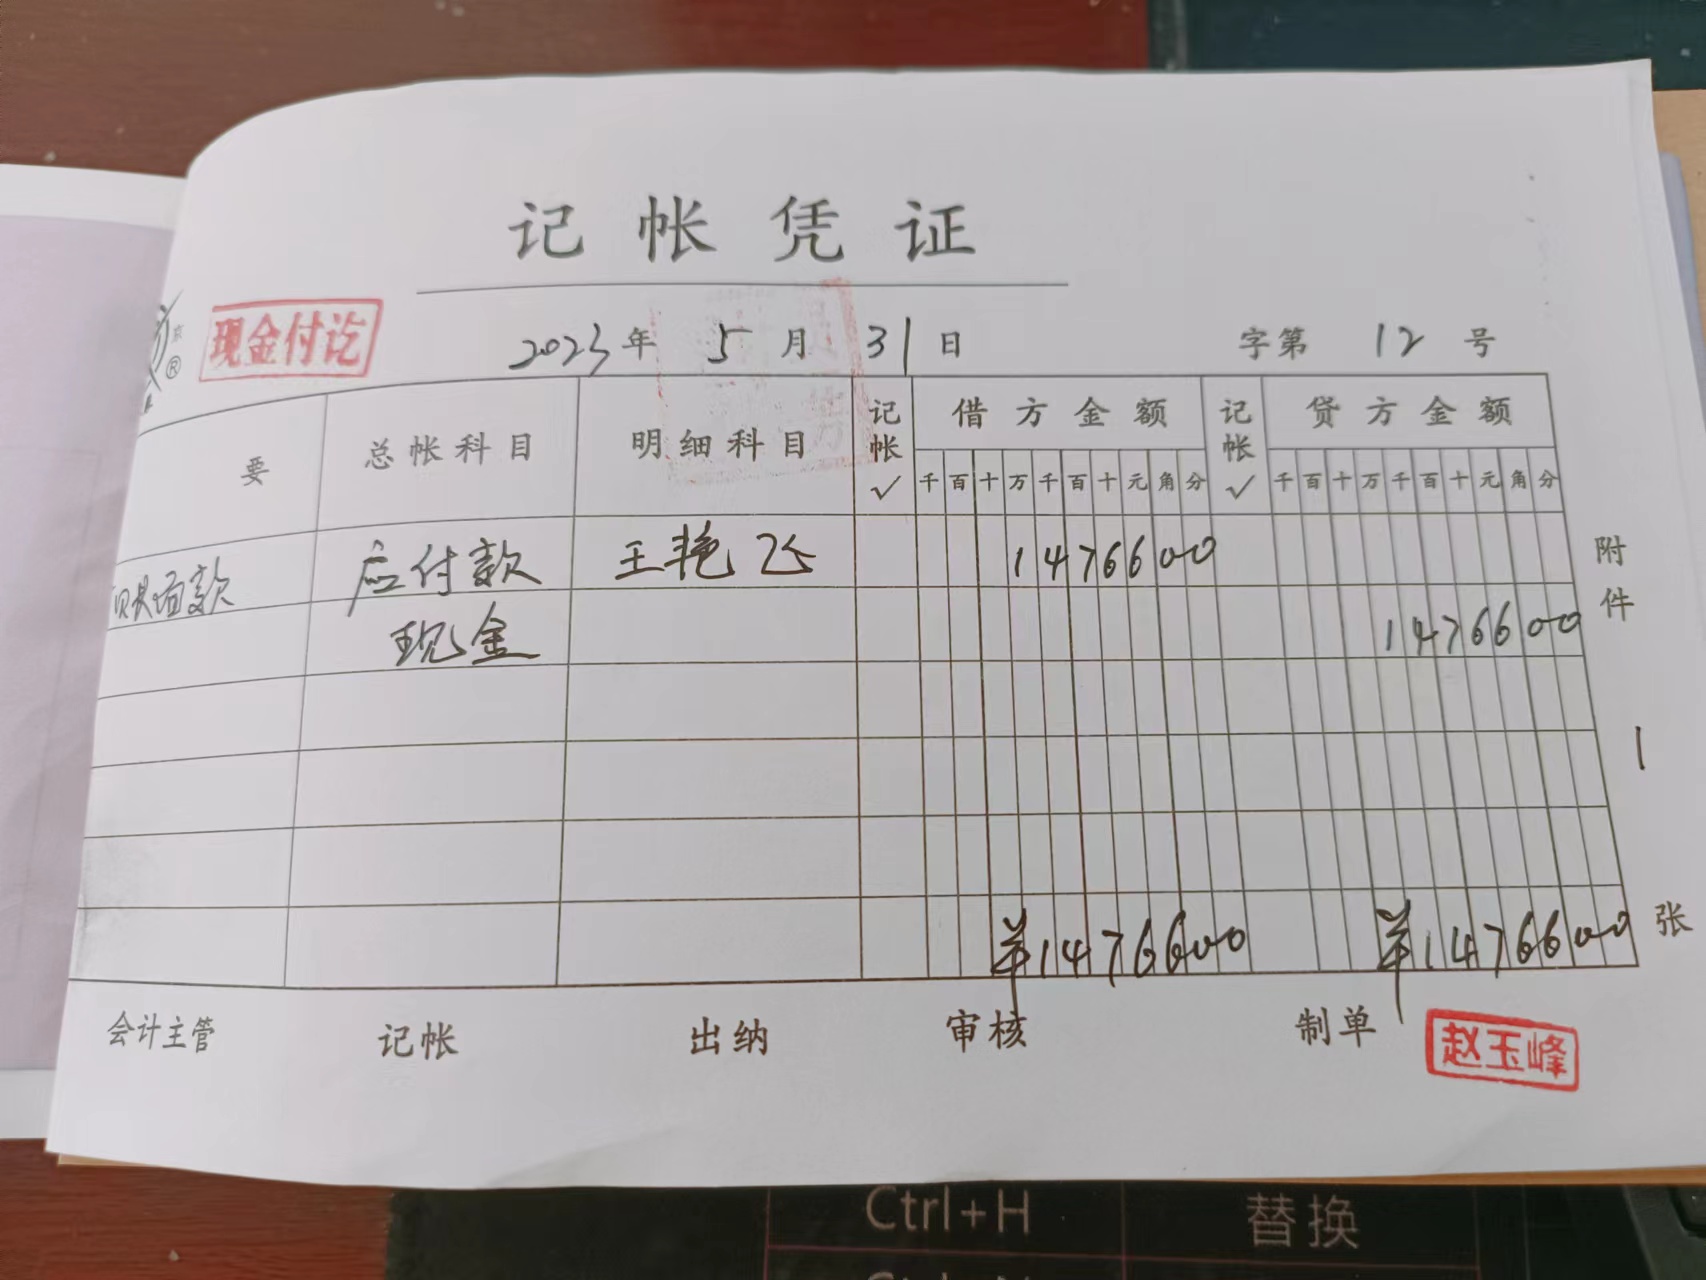 记帐凭证
京
®
现金付讫
2023年 5月 31日 字第 12 号
要 总帐科目 明细科目 记帐✓ 借方金额 记帐✓ 贷方金额
千百十万千百十元角分 千百十万千百十元角分
面款 应付款 王艳飞 1476600
现金 1476600
附件
1
张
¥1476600 ¥1476600
会计主管 记帐 出纳 审核 制单 赵玉峰
Ctrl+H 替换